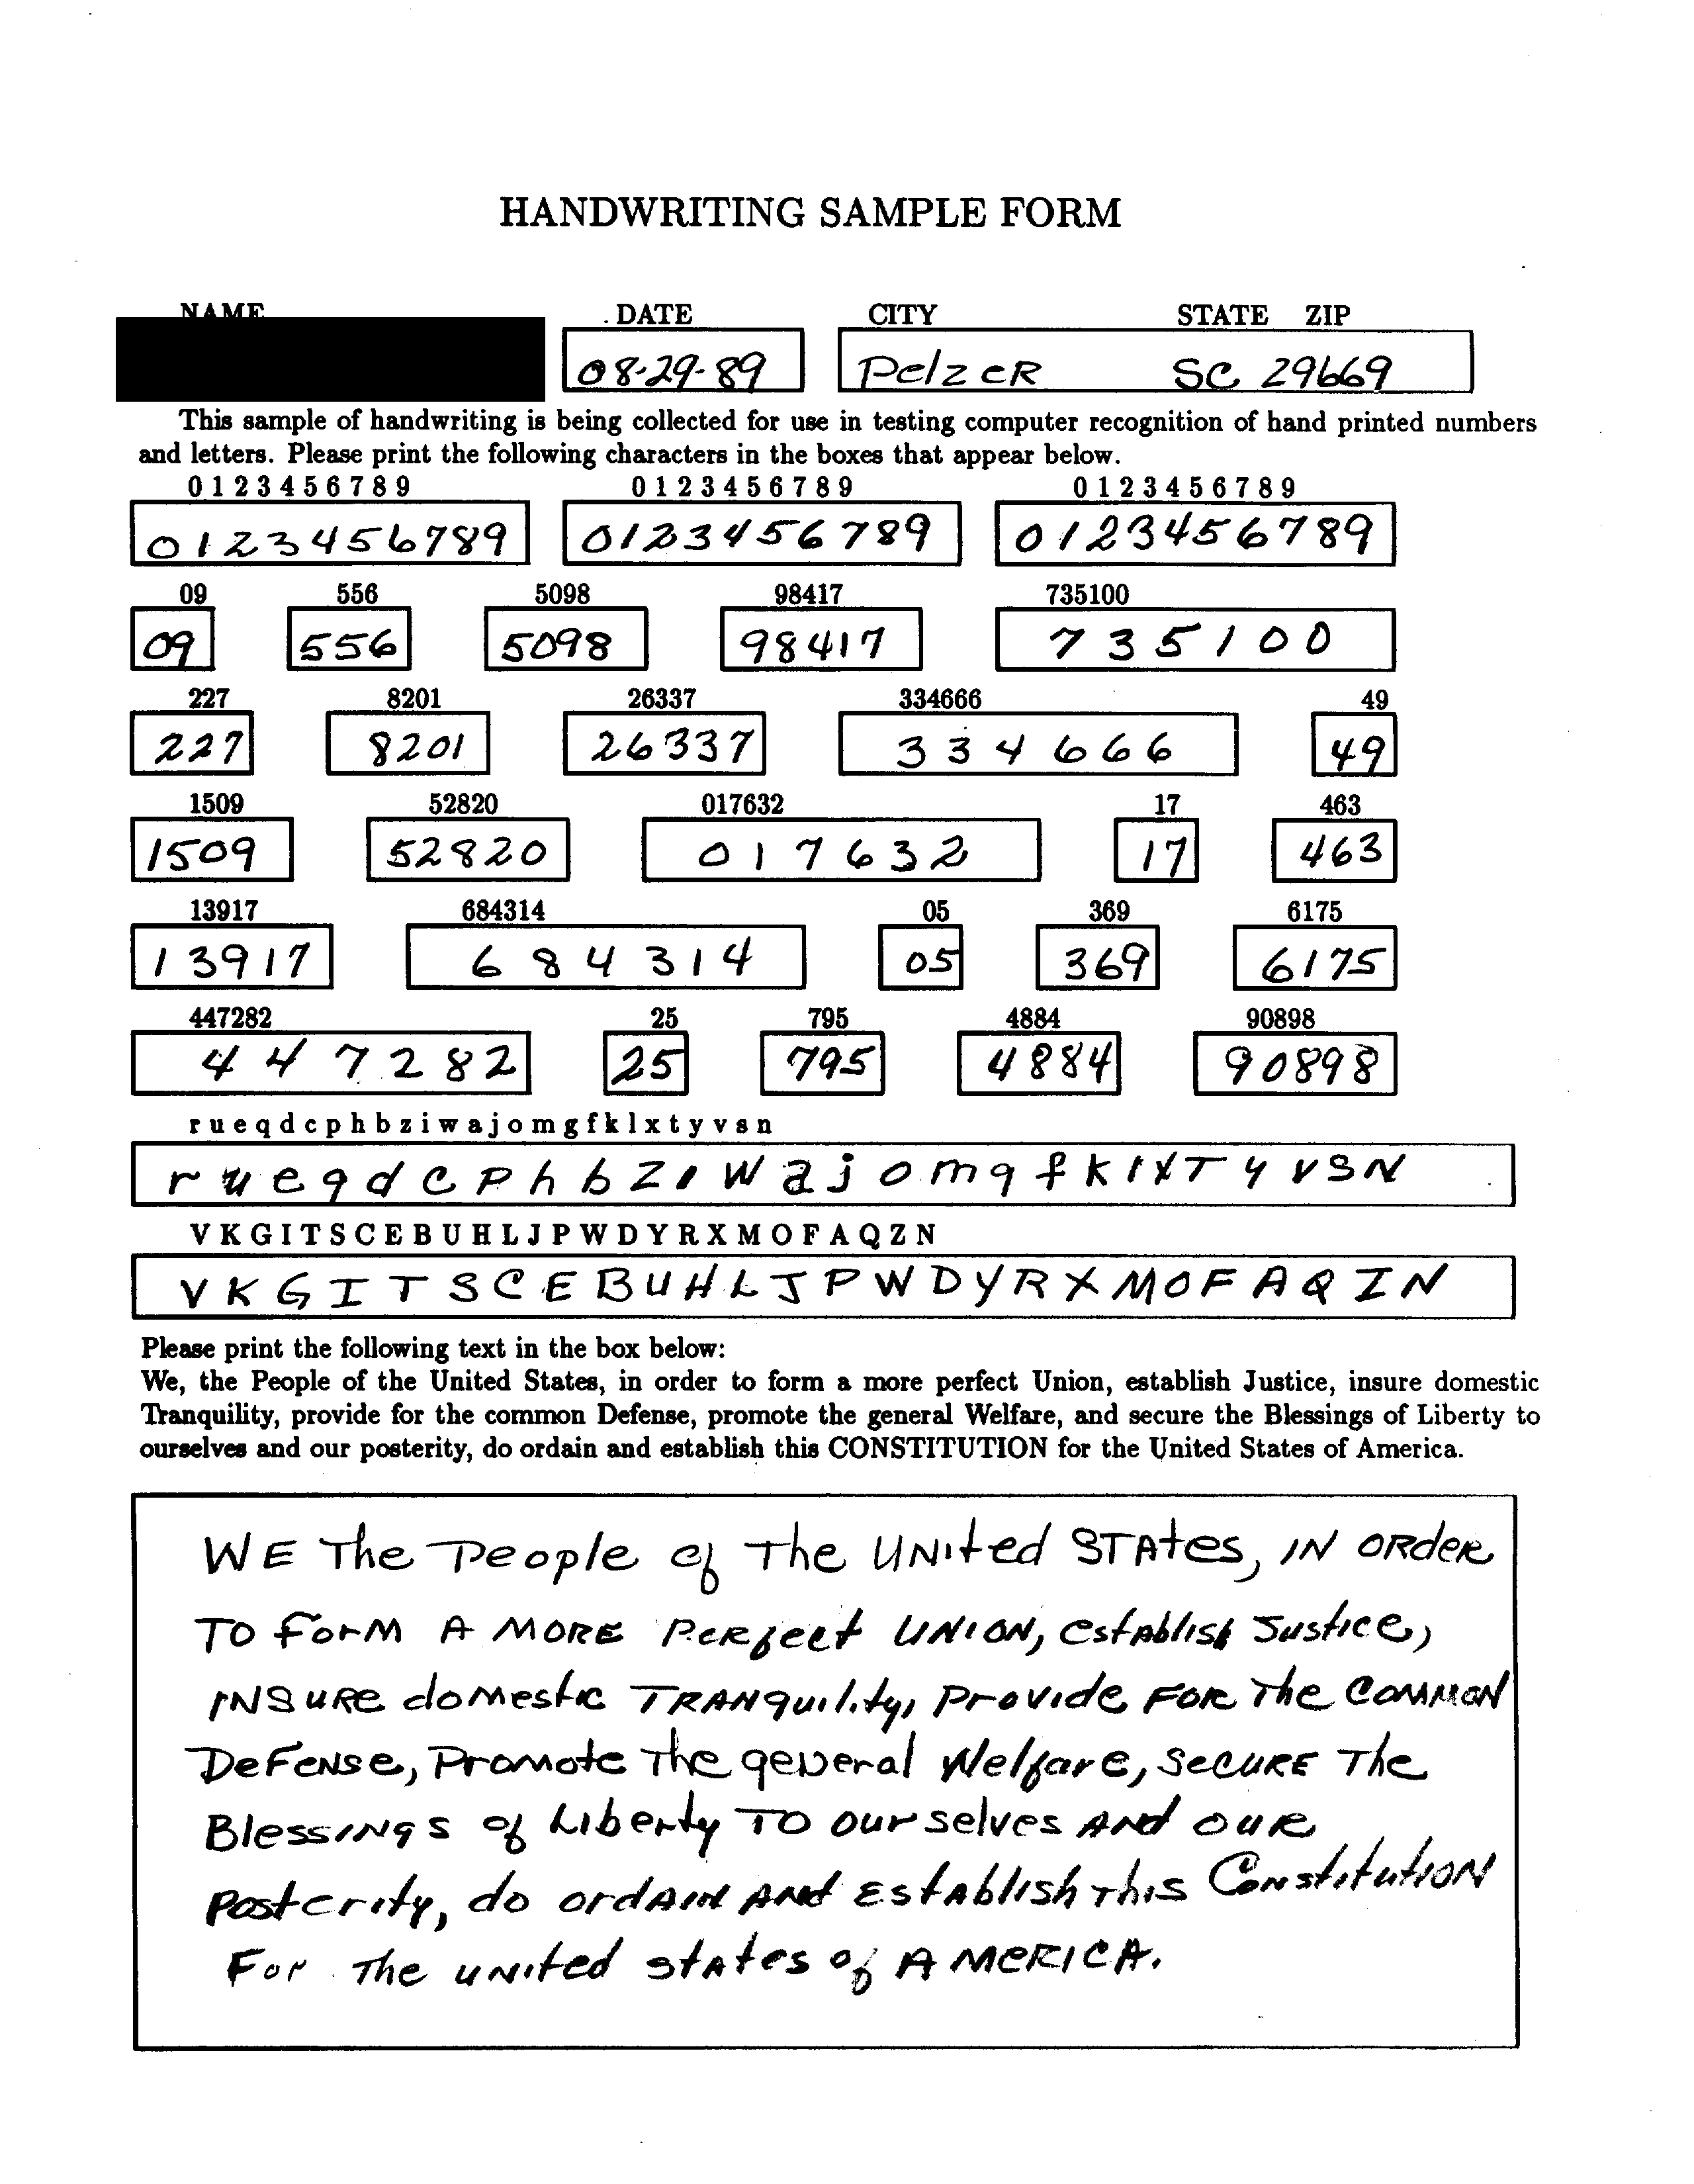 HANDWRITING SAMPLE FORM
NAME DATE CITY STATE ZIP
08-29-89 Pelzer SC 29669
This sample of handwriting is being collected for use in testing computer recognition of hand printed numbers
and letters. Please print the following characters in the boxes that appear below.
0 1 2 3 4 5 6 7 8 9 0 1 2 3 4 5 6 7 8 9 0 1 2 3 4 5 6 7 8 9
0123456789 0123456789 0123456789
09 556 5098 98417 735100
09 556 5098 98417 735100
227 8201 26337 334666 49
227 8201 26337 334666 49
1509 52820 017632 17 463
1509 52820 017632 17 463
13917 684314 05 369 6175
13917 684314 05 369 6175
447282 25 795 4884 90898
447282 25 795 4884 90898
r u e q d c p h b z i w a j o m g f k l x t y v s n
r u e q d c p h b z i w a j o m g f k l x T y v s N
V K G I T S C E B U H L J P W D Y R X M O F A Q Z N
V K G I T S C E B U H L J P W D Y R X M O F A Q Z N
Please print the following text in the box below:
We, the People of the United States, in order to form a more perfect Union, establish Justice, insure domestic
Tranquility, provide for the common Defense, promote the general Welfare, and secure the Blessings of Liberty to
ourselves and our posterity, do ordain and establish this CONSTITUTION for the United States of America.
WE The People of The UNited STAtes, IN ORdeR
TO forM A MORE PeRfect UNION, estAblish Justice,
INSURe domestic TRANquility, Provide FOR The COMMON
DeFeNse, Promote The general Welfare, SecURE The
BlessINgs of Liberty TO ourselves ANd OUR
Posterity, do ordAIN ANd EstAblish this ConstitutION
For The uNited stAtes of AMERICA.